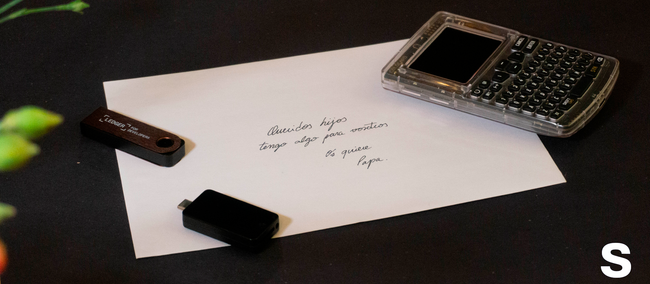 Queridos hijos
tengo algo para vosotros
Os quiere
Papa.
LEDGER
S